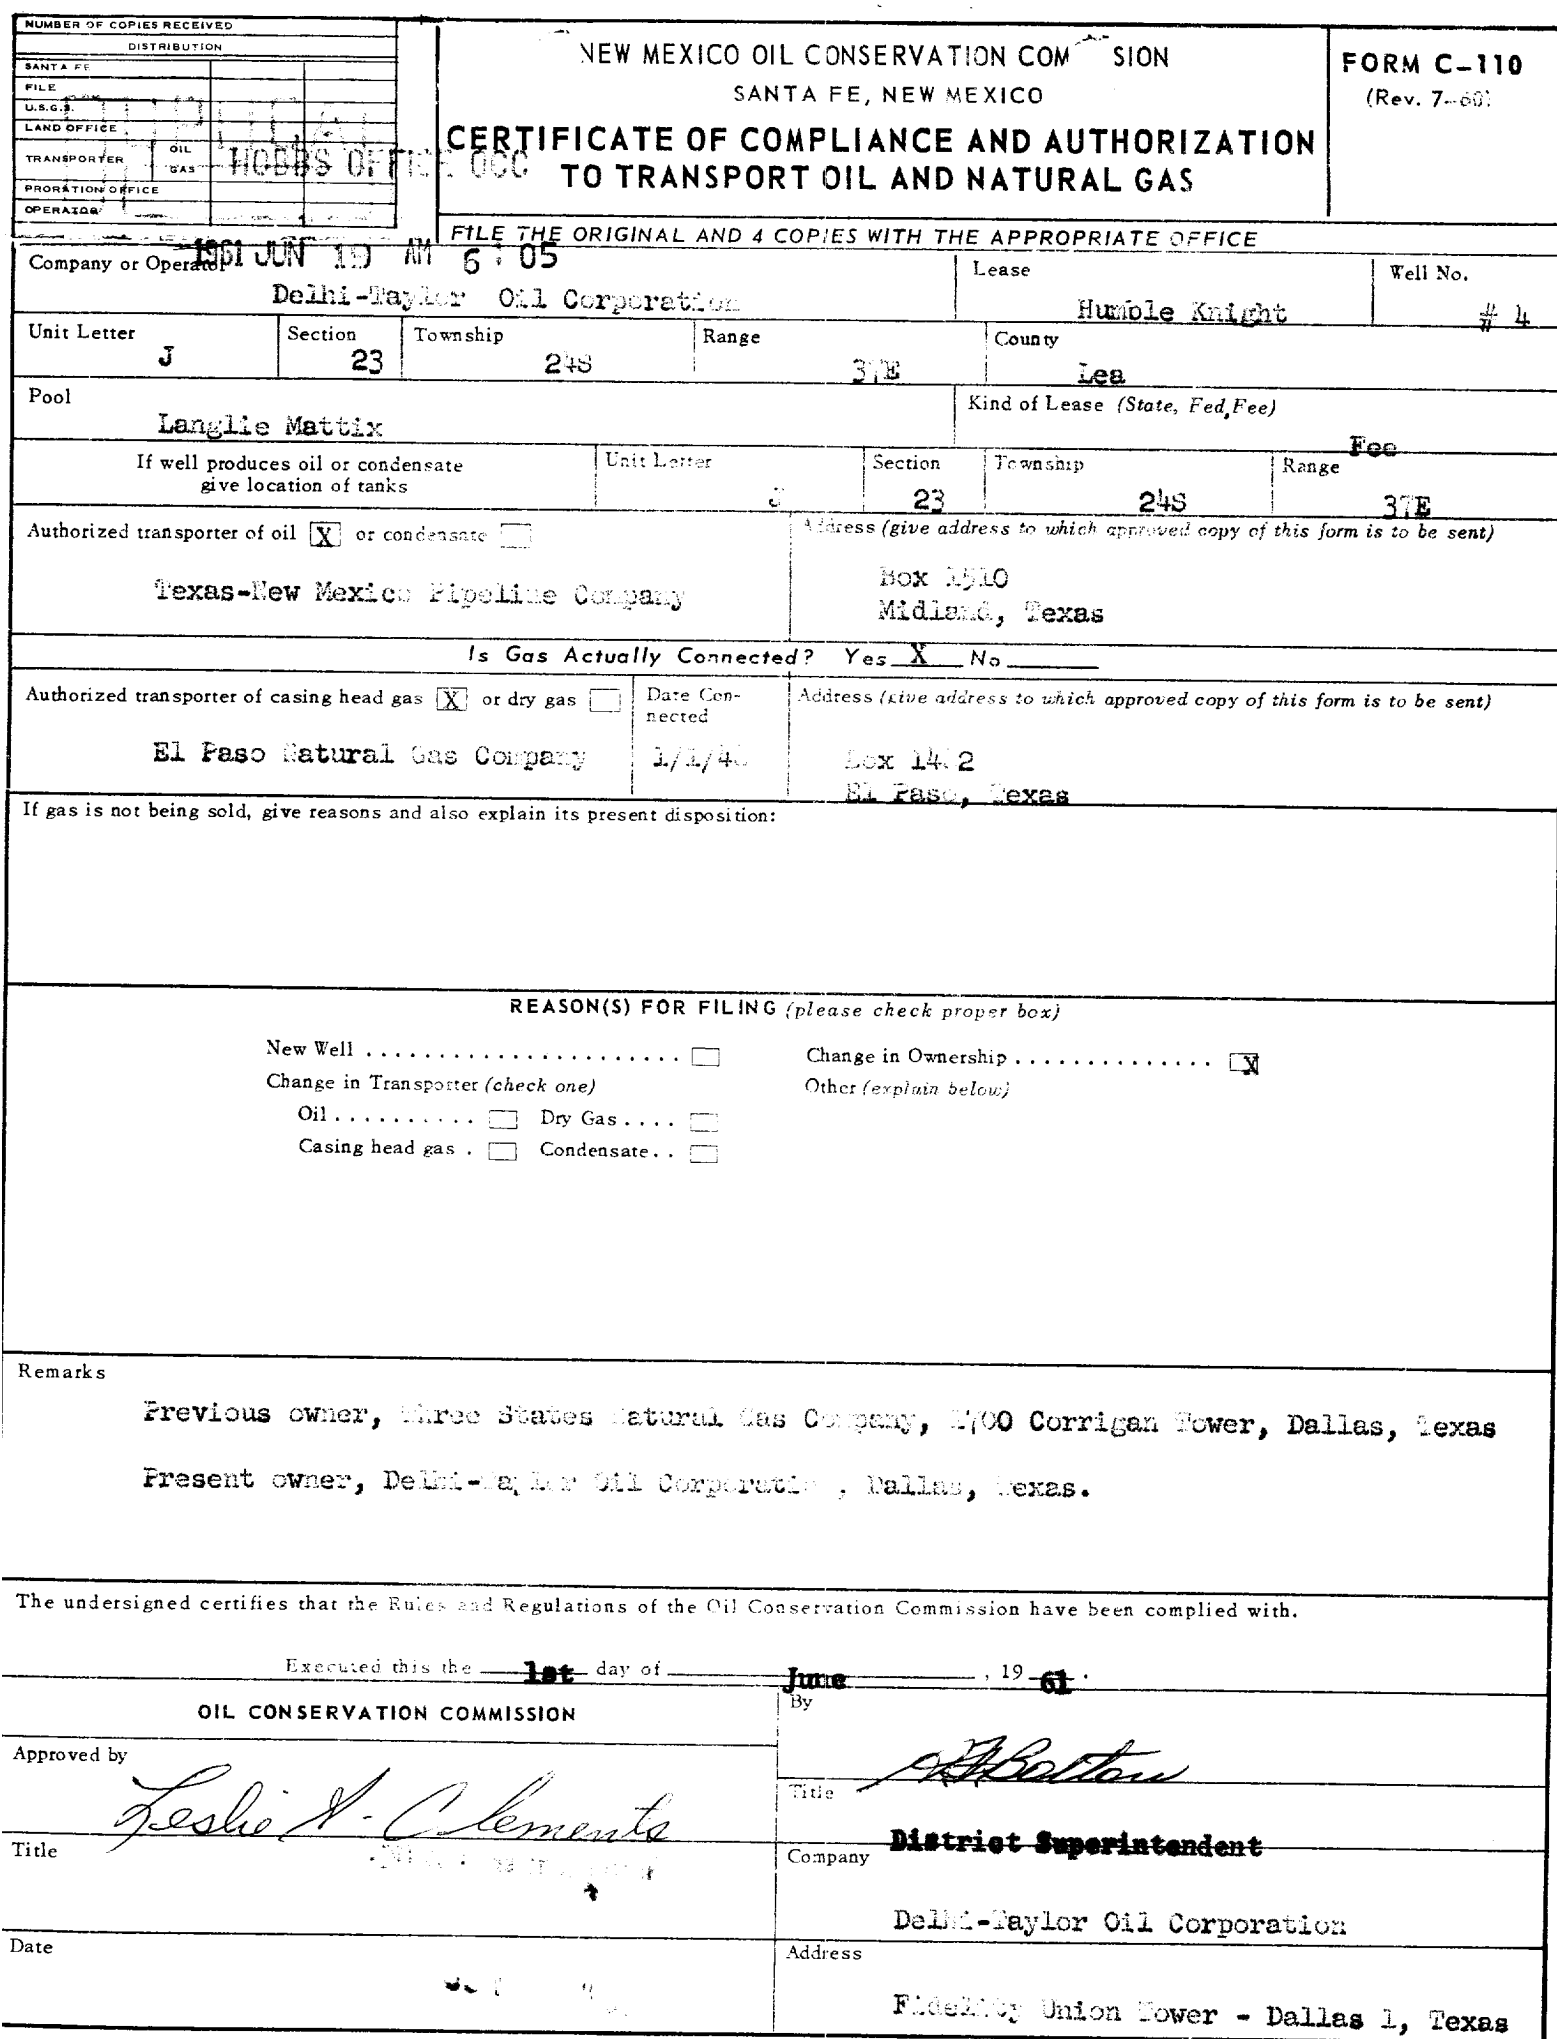 NUMBER OF COPIES RECEIVED
DISTRIBUTION
SANTA FE
FILE
U.S.G.S.
LAND OFFICE
TRANSPORTER OIL
GAS
PRORATION OFFICE
OPERATOR
HOBBS OFFICE OCC
1961 JUN 19 AM 6:05
NEW MEXICO OIL CONSERVATION COM SION
SANTA FE, NEW MEXICO
CERTIFICATE OF COMPLIANCE AND AUTHORIZATION
TO TRANSPORT OIL AND NATURAL GAS
FORM C-110
(Rev. 7-60)
FILE THE ORIGINAL AND 4 COPIES WITH THE APPROPRIATE OFFICE
Company or Operator
Delhi-Taylor Oil Corporation
Lease
Humble Knight
Well No.
# 4
Unit Letter
J
Section
23
Township
24S
Range
37E
County
Lea
Pool
Langlie Mattix
Kind of Lease (State, Fed, Fee)
Fee
If well produces oil or condensate
give location of tanks
Unit Letter
J
Section
23
Township
24S
Range
37E
Authorized transporter of oil X or condensate
Texas-New Mexico Pipeline Company
Address (give address to which approved copy of this form is to be sent)
Box 1510
Midland, Texas
Is Gas Actually Connected? Yes X No
Authorized transporter of casing head gas X or dry gas
El Paso Natural Gas Company
Date Con-
nected
1/1/4
Address (give address to which approved copy of this form is to be sent)
Box
El Paso, Texas
If gas is not being sold, give reasons and also explain its present disposition:
REASON(S) FOR FILING (please check proper box)
New Well
Change in Ownership X
Change in Transporter (check one)
Other (explain below)
Oil
Dry Gas
Casing head gas
Condensate
Remarks
Previous owner, Three States Natural Gas Company, 1700 Corrigan Tower, Dallas, Texas
Present owner, Delhi-Taylor Oil Corporation, Dallas, Texas.
The undersigned certifies that the Rules and Regulations of the Oil Conservation Commission have been complied with.
Executed this the 1st day of June, 19 61.
OIL CONSERVATION COMMISSION
By
Bolton
Approved by
Leslie A. Clements
Title
District Superintendent
Title
Company
Delhi-Taylor Oil Corporation
Date
Address
Fidelity Union Tower - Dallas 1, Texas